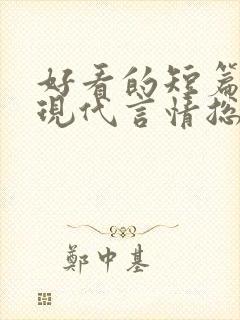 好看的短篇
現代言情總
鄭中基